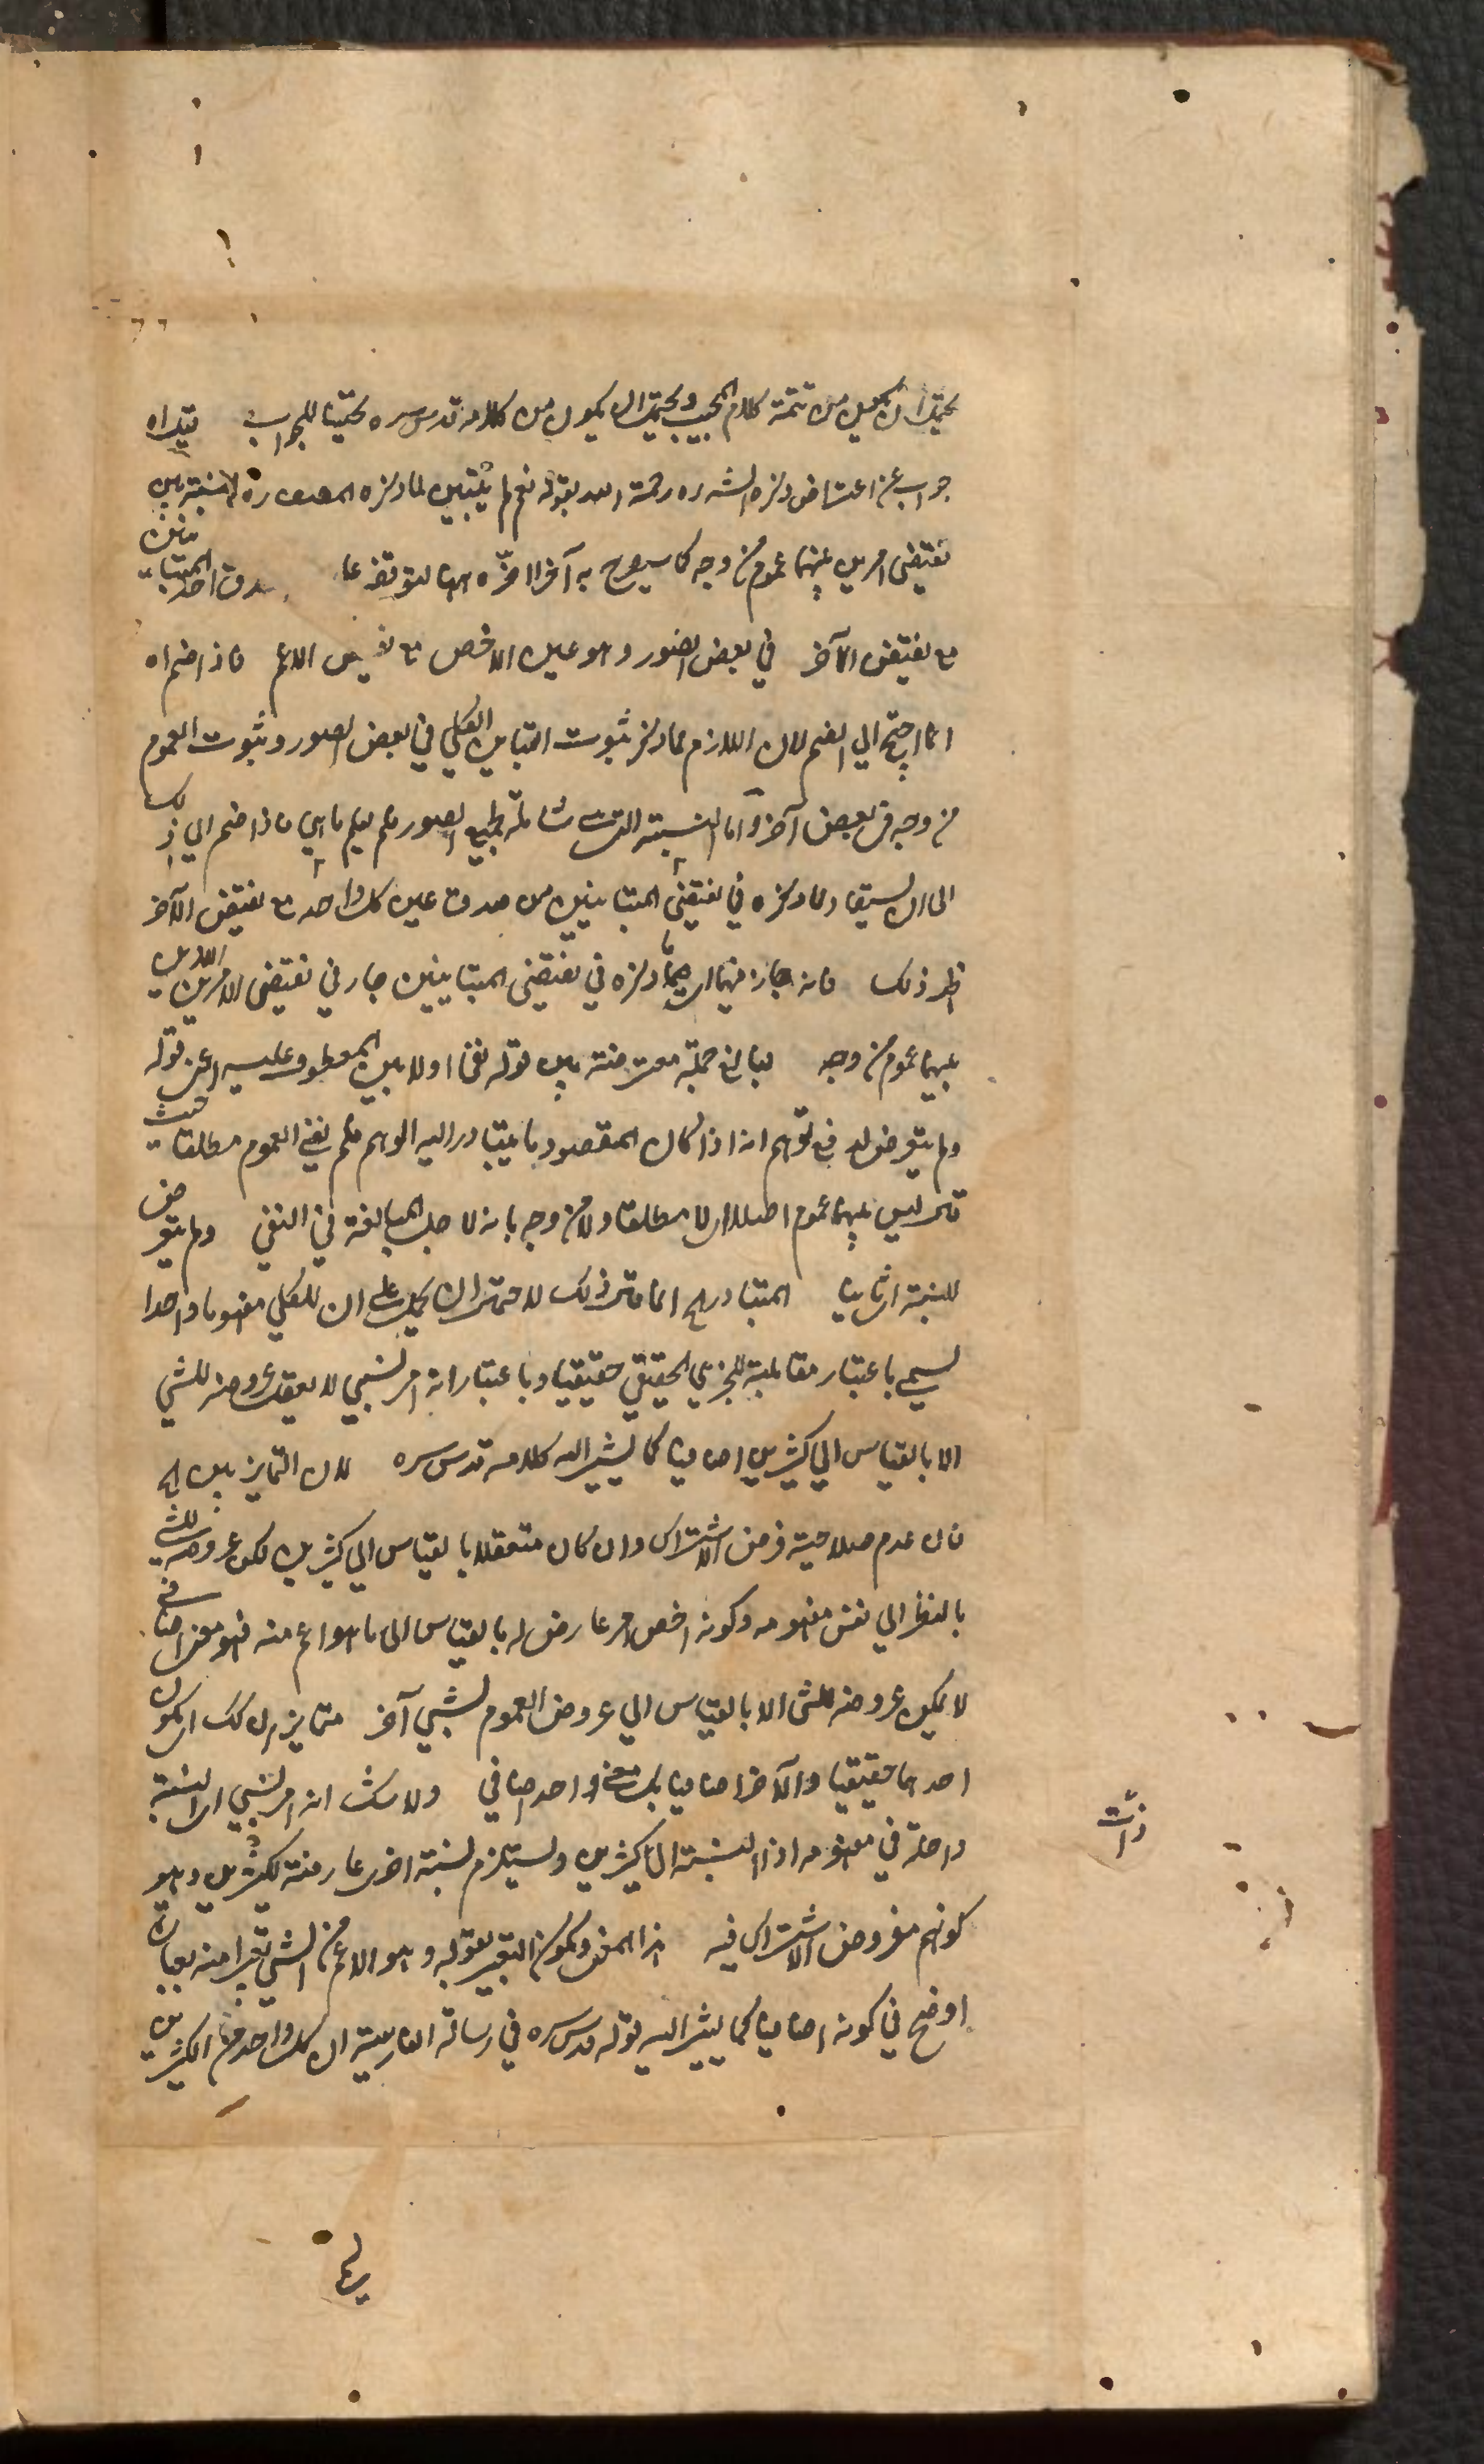 يحتمل ان يكون من تتمة كلام المجيب ويحتمل ان يكون من كلامه قدس سره تحقيقا للجواب
جواب عن اعتراض ذكره الشه ره رحمة الله بقوله نعم لم يتبين لما ذكره المصنف ره النسبة بين
نقيضي امرين بينهما عموم من وجه كما سيصرح به آخرا صدق احد المتباينين
مع نقيض الآخر في بعض الصور وهو عين الاخص مع نقيض الاعم فاذا ضم اه
انما احتيج الي الضم لان اللازم مما ذكر ثبوت التباين الكلي في بعض الصور وثبوت العموم
من وجه في بعض آخر واما النسبة التي شاملة لجميع الصور فلم يعلم ما هي فاذا ضم الي ذلك
الى ان يستفاد مما ذكره في نقيضي المتباينين من صدق عين كل واحد مع نقيض الآخر
اظهر ذلك فانه جار فيهما اي ما ذكره في نقيضي المتباينين جار في نقيضي الامرين اللذين
بينهما عموم من وجه جملة معترضة بين قوله نفيا اولا بين المعطوف عليه اعني قوله
ولم يتعرض له دفع توهم انه اذا كان المقصود ما يتبادر اليه الوهم فلم نفي العموم مطلقا حيث
قال ليس بينهما عموم اصلا اي لا مطلقا ولا من وجه بانه لاجل المبالغة في النفي ولم يتعرض
للنسبة المتبادر اه انما قال ذلك لاحتمال ان يحمل على ان للكلي مفهوما واحدا
يسمى باعتبار مقابلته للجزئي الحقيقي حقيقيا وباعتبار انه امر نسبي لا يعقل عروضه للشي
الا بالقياس الي كثيرين اضافيا كما يشير اليه كلامه قدس سره لان التمايز بين اه
فان عدم صلاحية فرض الاشتراك وان كان متعقلا بالقياس الي كثيرين لكن عروضه للشي
بالنظر الي نفس مفهومه وكونه اخص امر عارض له بالقياس الى ما هو اعم منه فهو معنى اضافي
لا يمكن عروضه للشي الا بالقياس الي عروض العموم لشيي آخر متمايزا كك ان يكون
احدهما حقيقيا والآخر اضافيا بل معنى واحد اضافي ولا شك انه امر نسبي اي النسبة
داخلة في مفهومه اذا النسبة الى كثيرين ويستلزم نسبة اخرى عارضة لكثيرين وهو
كونهم مفروض الاشتراك فيه هذا المعنى ويكون التعبير بقوله وهو الاعم من الشي تعبيرا منه بعبارة
اوضح في كونه اضافيا كما يشير اليه قوله قدس سره في رسالته الفارسية ان كل واحد من الكثيرين